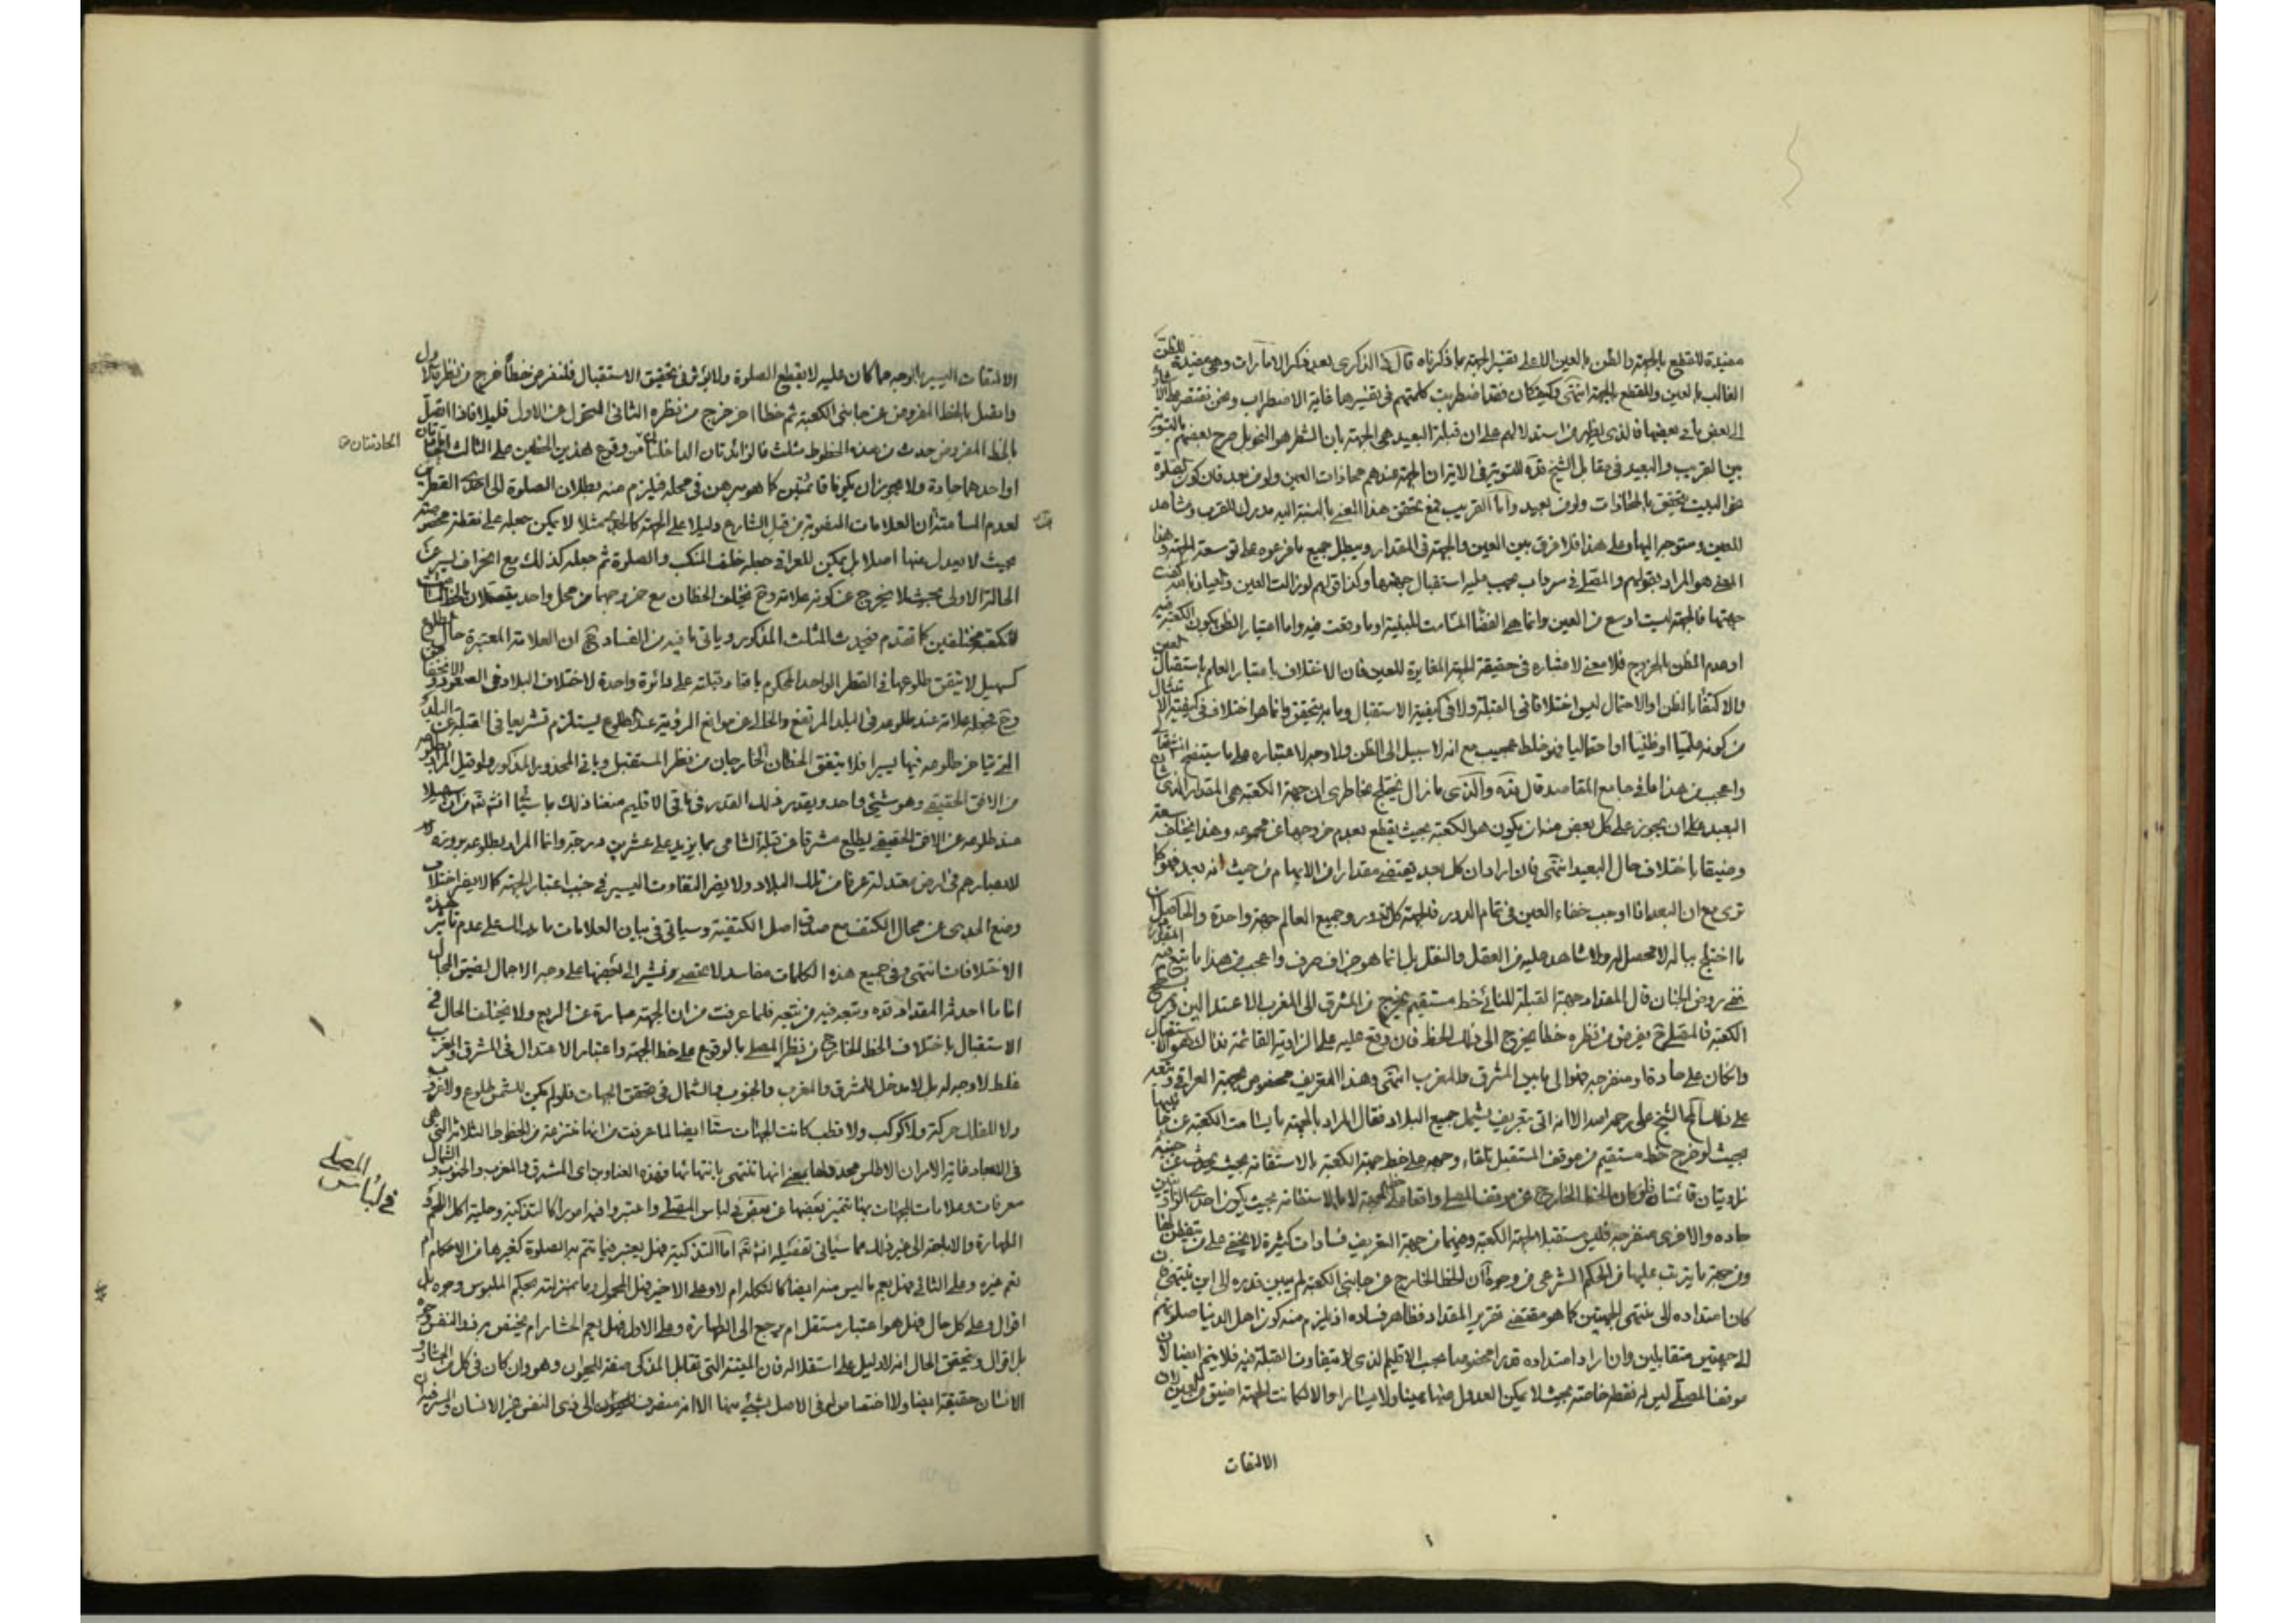 مفيدة لا قطع بالجهة والظن بالعين الا على تفسير الجهة بما ذكرناه قال في الذكرى بعد ذكر الامارات وهي مفيدة للظن
الغالب بالعين وللقطع بالجهة انتهى وكيف كان فقد اضطربت كلمتهم في تفسيرها غاية الاضطراب ونحن نقتصر على الاشارة
الى بعض ما في بعضها فالذى يظهر من استدلالهم على ان قبلة البعيد هي الجهة بان الشطر هو النحو بل صرح بعضهم بالتسوية
بين القريب والبعيد في مقابل الشيخ قده
نحو البيت يتحقق بالمحاذات ولو من بعيد واما القريب فمع تحقق هذا المعنى بالنسبة اليه مدرك للقرب ومشاهد
للعين ومتوجه اليها وعلى هذا فلا فرق بين العين والجهة في المقدار ويبطل جميع ما فرعوه على توسعة الجهة وهذا
المعنى هو المراد بقولهم والمصلى في سرداب يجب عليه استقبال جهتها وكذا قولهم لو زالت العين والعياذ بالله كفت
جهتها فالجهة ليست اوسع من العين وانما هي الفضاء المسامت للبنية او ما وقعت فيه واما اعتبار الظن بكون الكعبة فيه
او عدم الظن بالخروج فلا معنى لاعتباره في حقيقة الجهة المغايرة للعين فان الاختلاف باعتبار العلم باستقبال العين
والاكتفاء بالظن او الاحتمال ليس اختلافا في القبلة ولا في كيفية الاستقبال وما به يتحقق وانما هو اختلاف في كيفية الامتثال
من كونه علميا او ظنيا او احتماليا فهو خلط عجيب مع انه لا سبيل الى الظن ولا وجه لاعتباره على ما ستتضح انشاء الله
واعجب من هذا ما في جامع المقاصد قال قده والذى ما زال يختلج بخاطرى ان جهة الكعبة هي المقدار الذى شان
البعيد على ان يجوز على كل بعض منه ان يكون هو الكعبة بحيث يقطع بعدم خروجها عن مجموعه وهذا يختلف سعة
وضيقا باختلاف حال البعيد انتهى فان اراد ان كل بعد يقتضى مقدارا من الابهام من حيث انه بعد فهو كما
ترى مع ان البعد اذا اوجب خفاء العين في تمام الدور فالجهة كل الدور وجميع العالم جهة واحدة والحاصل ان
ما اختلج بباله لا محصل له ولا شاهد عليه من العقل والنقل بل انما هو جزاف صرف واعجب من هذا ما
ففي روض الجنان قال المقداد جهة القبلة للنائى خط مستقيم يخرج من المشرق الى المغرب الاعتدالين ويمر بسطح
الكعبة فالمصلى ح يفرض من نظره خطا يخرج الى ذلك الخط فان وقع عليه على الزاوية القائمة فذاك هو الاستقبال
وان كان على حادة او منفرجة فهو الى ما بين المشرق والمغرب انتهى وهذا التعريف مخصوص بجهة العراقى وتبعه
على ذلك الشيخ على رحمه الله الا انه اتى بتعريف يشمل جميع البلاد فقال المراد بالجهة ما يسامت الكعبة عن جانبيها
بحيث لو خرج خط مستقيم من موقف المستقبل تلقاء وجهه على خط جهة الكعبة بالاستقامة بحيث يحدث عن جنبيه
زاويتان قائمتان فلو كان الخط الخارج عن موقف المصلى واقعا على خط الجهة لا بالاستقامة بحيث يكون احدى الزاويتين
حادة والاخرى منفرجة فليس مستقبلا لجهة الكعبة وفيهما من جهة التعريف فسادات كثيرة لا يخفى على من يتفطن لها
ومن جهة ما يترتب عليها من الحكم الشرعى من وجوه ان الخط الخارج عن جانبى الكعبة لم يبين قدره الى اين ينتهى فان
كان امتداده الى منتهى الجهتين كما هو مقتضى تقرير المقداد فظاهر فساده اذ يلزم منه كون اهل الدنيا صلوتهم
الى جهتين متقابلين وان اراد امتداده قدرا مخصوصا بحسب الاقليم الذى لا يتفاوت القبلة فيه فلا يتم ايضا لان
موقف المصلى ليس له نقطة خاصة بحيث لا يمكن العدول عنها يمينا ولا يسارا والا لكانت الجهة اضيق من العين لان
الالتفات
الالتفات اليسير بالوجه عما كان عليه لا يقطع الصلوة ولا يؤثر في تحقيق الاستقبال فلنفرض خطا خرج من نظره اولا
واتصل بالخط المفروض عن جانبى الكعبة ثم خطا اخر خرج من نظره الثانى المتحول عن الاول قليلا فاذا اتصل
بالخط المفروض حدث من هذه الخطوط مثلث فالزاويتان الداخلتان من وقوع هذين الخطين على الثالث
الحادثتان
او احدهما حادة ولا يجوز ان يكونا قائمتين كما هو مبرهن في محله فيلزم منه بطلان الصلوة الى احدى القطرين
لعدم المسامتة ان العلامات المنصوبة من قبل الشارع دليلا على الجهة كالجدى مثلا لا يمكن جعله على نقطة مخصوصة
بحيث لا يعدل عنها اصلا بل يمكن للعراقى جعله خلف المنكب والصلوة ثم جعله كذلك مع انحراف يسير عن
الحالة الاولى بحيث لا يخرج عن كونه علامة وح يختلف الخطان مع خروجهما من محل واحد
كما تقدم فيحدث المثلث المذكور وياتى ما فيه من الفساد ان العلامة المعتبرة حال طلوع
كسهيل لا يتفق طلوعها في القطر الواحد المحكوم باتحاد قبلته على دائرة واحدة لاختلاف البلاد في الصعود والانخفاض
وح فجعله علامة عند طلوعه في البلد المرتفع والخالى عن موانع الرؤية عند الطلوع يستلزم تشريقا في القبلة عن البلد
التى تياخر طلوعه فيها يسيرا فلا يتفق الخطان الخارجان من نظر المستقبل وياتى المحذور المذكور ولو قيل المراد بطلوعه
من الافق الحقيقى وهو شىء واحد ويقدر ذلك القدر في باقى الاقليم منعنا ذلك بما سياتى انشاء الله من ان سهيلا
عند طلوعه عن الافق الحقيقى يطلع مشرقا عن قبلة الشامى بما يزيد على عشرين درجة وانما المراد بطلوعه بروزه
للابصار هم في ارض معتدلة عرفا من تلك البلاد ولا يضر التفاوت اليسير في جنب اعتبار الجهة كما لا يضر اختلاف
وضع الجدى عن محال الكتف مع صدق اصل الكتفية وسياتى في بيان العلامات ما يدلك على عدم تاثير هذه
الاختلافات انتهى وفي جميع هذه الكلمات مفاسد لا تحصى ونشير الى بعضها على وجه الاجمال لضيق المجال
اما ما احدثه المقداد قده وتبعه فيه من تبعه فلما عرفت من ان الجهة عبارة عن الربع ولا يختلف الحال في
الاستقبال باختلاف الخط الخارج من نظر المصلى بالوقوع على خط الجهة واعتبار الاعتدال في المشرق والمغرب
غلط لا وجه له بل لا مدخل للمشرق والمغرب والجنوب والشمال في تحقق الجهات فلو لم يكن للشمس طلوع ولا غروب
ولا للفلك حركة ولا كوكب ولا قطب كانت الجهات ستا ايضا لما عرفت من انها منتزعة من الخطوط الثلاثة التى هي
في الابعاد غاية الامر ان الاطلس محدد لها بمعنى انها تنتهى بانتهائها فهذه العناوين اى المشرق والمغرب والجنوب والشمال
معرفات وعلامات للجهات بها تتميز بعضها عن بعض في لباس المصلى واعتبروا فيه امورا كالتذكية وحلية اكل اللحم و
في لباس المصلى
الطهارة والاباحة الى غير ذلك مما سياتى تفصيله انشاء الله اما التذكية فهل يعتبر فيما تتم به الصلوة كغيرها من الاحكام ام
تعم غيره وعلى الثانى فهل يعم ما ليس منه ايضا كالتكة ام لا وعلى الاخير فهل المحمول وما بمنزلته بحكم الملبوس وجوه بل
اقوال وعلى كل حال فهل هو اعتبار مستقل ام يرجع الى الطهارة وعلى الاول فهل يعم الحشار ام يختص بذى النفس وجوه
بل اقوال وتحقيق الحال انه لا دليل على استقلاله فان الميتة التى تقابل المذكى صفة للحيوان وهو وان كان في كل من الحشار و
الانسان حقيقة ايضا ولا اختصاص له في الاصل بشىء منها الا انه منصرف الى ذى النفس غير الانسان